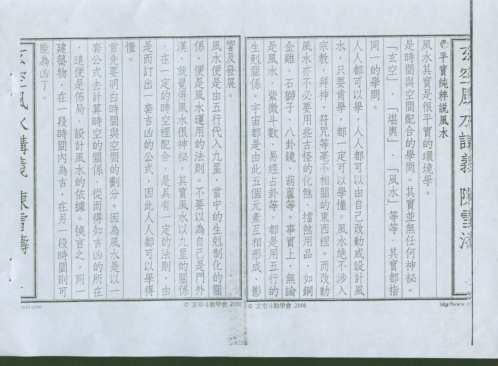 玄空風水講義 陳雪濤
平實純粹說風水
風水其實是很平實的環境學。
是時間與空間配合的學問。其實並無任何神秘。
「玄空」、「堪輿」、「風水」等等,其實都指
同一的學問。
人人都可以學,人人都可以由自己改動或設計風
水,只要肯學,都一定可以學懂。風水絕不涉入
宗教、拜神、符咒等毫不相關的東西裡。而改動
風水亦不必要用些古怪的化煞、擋煞用品,如銅
金雞、石獅子、八卦鏡、葫蘆等。事實上,無論
是風水、紫微斗數、易經占卦等,都是用五行的
生剋關係,宇宙都是由此五個元素互相形成、影
響及發展。
風水便是由五行代入九星,當中的生剋制化的關
係,便是風水運用的法則。不要以為自己是門外
漢,就覺得風水很神秘。其實風水以九星的關係
,在一定的時空裡配合,是具有一定的法則,由
是而訂出一套吉凶的公式。因此人人都可以學得
懂。
首先要明白時間與空間的劃分。因為風水是以一
套公式去計算時空的關係,從而得知吉凶的所在
,這便是佈局、設計風水的依據。換言之,同一
建築物,在一段時間內為吉,在另一段時間則可
能為凶了。
玄空風水講義 陳雪濤
© 玄空斗數學會 2006
© 玄空斗數學會 2006